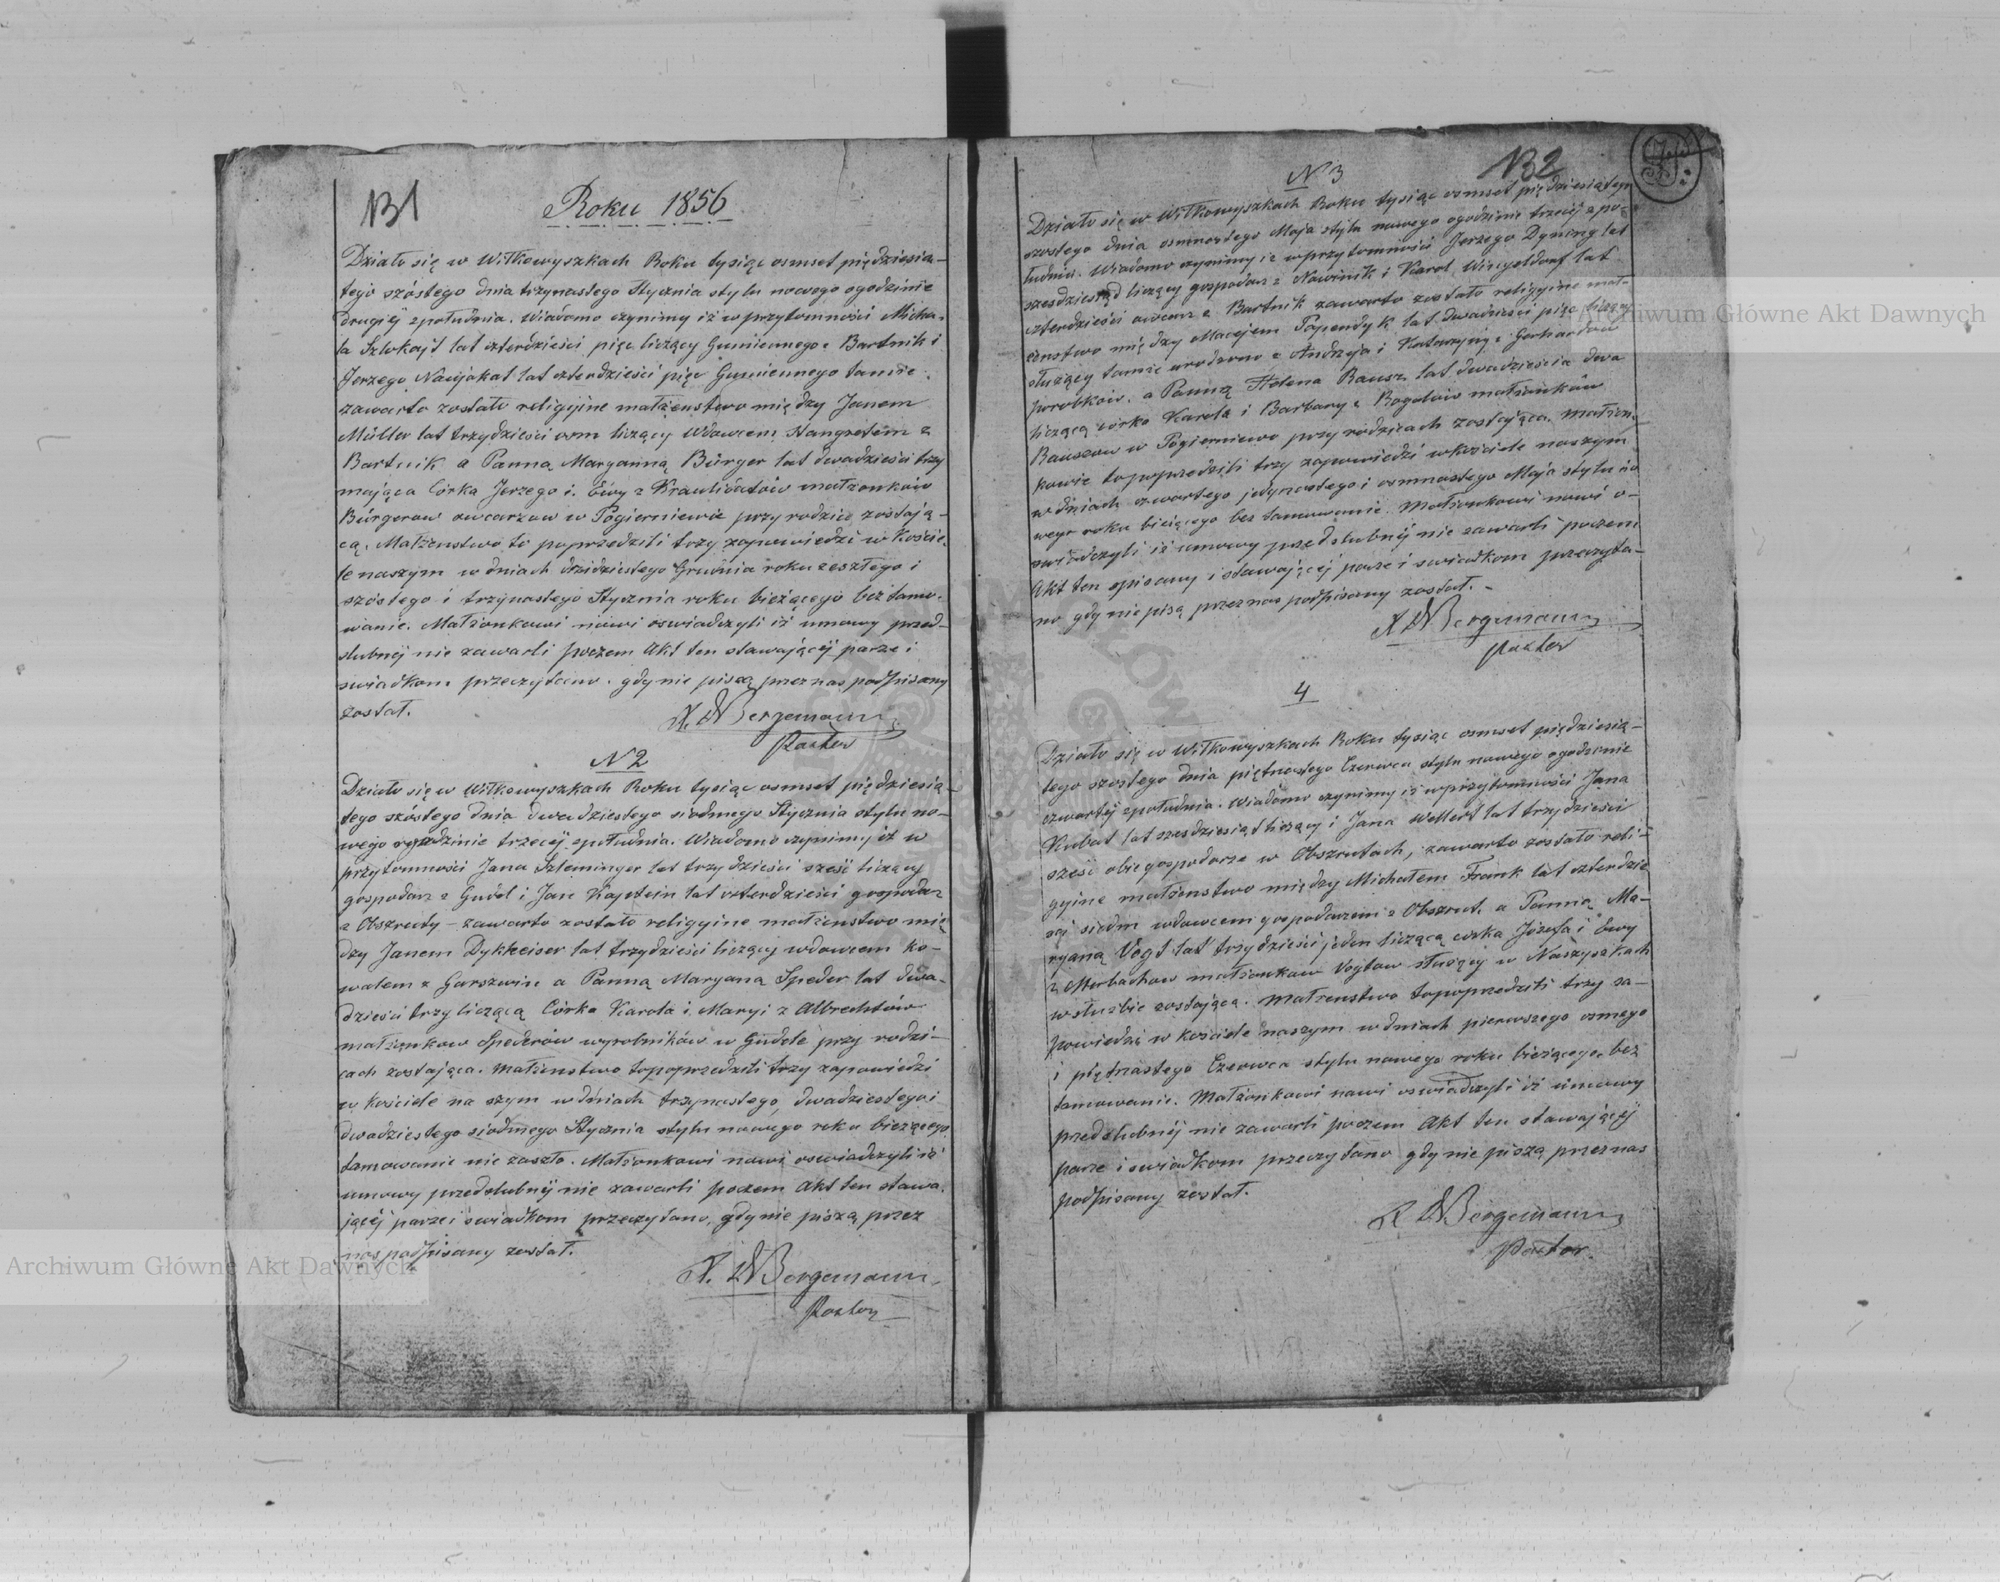 131
Roku 1856
Działo się w Wiłkowyszkach Roku tysiąc osmset piędziesią-
tego szóstego dnia trzynastego Stycznia stylu nowego ogodzinie
drugiéj zpołudnia. Wiadomo czynimy iż w przytomności Micha-
ła Szlokajt lat czterdzieści pięć liczący Gumiennego z Bartnik i
Jerzego Naujokat lat czterdzieści pięć Gumiennego tamże
zawarto zostało religijne małżenstwo między Janem
Müller lat trzydzieści osm liczący Wdowcem Stangretem z
Bartnik a Panną Maryanną Bürger lat dwadzieści trzy
mająca Córka Jerzego i Ewy z małżonków
Bürgerow owcarzow w Pogierniewie przy rodzicu zostają-
cą. Małżenstwo to poprzedziłi trzy zapowiedzi w Koście-
le naszym w dniach Grudnia roku zeszłego i
szóstego i trzynastego Stycznia roku bieżącego bez tamo-
wanie. Małżonkowi nowi oswiadczyli iż umowy przed-
slubnéj nie zawarli poczem Akt ten stawającéj parze i
swiadkom przeczytano. gdy nie piszą przez nas podpisany
został.
Bergemann
Pastor
N 2
Działo się w Wiłkowyszkach Roku tysiąc osmset piędziesią-
tego szóstego dnia dwadziestego siodmego Stycznia stylu no-
wego ogodzinie trzecéj zpołudnia. Wiadomo czynimy iż w
przytomności Jana Szleminger lat trzydzieści szesć liczący
gospodarz z Gudel i Jan Kapstein lat czterdzieści gospodarz
z Obszruty - zawarto zostało religyine małżenstwo mię
dzy Janem Dykheiser lat trzydzieści liczący wdowcem ko-
walem z Garszwin a Panną Maryaną Speder lat dwa-
dzieści trzy liczącą Córka Karola i Maryi z Albrechtów
małżonkow Spederów wyrobników w Gudele przy rodzi-
cach zostająca. Małżenstwo topoprzedziłi trzy zapowiedzi
w kościele na szym w dniach trzynastego, dwadziestego i
dwadziestego siodmego Stycznia stylu nowego roku bieżącego
tamowanie nie zaszło. Małżonkowi nowi oswiadczyli iż
umowy przedslubnéj nie zawarli poczem Akt ten stawa-
jącéj parze i swiadkom przeczytano, gdy nie piszą przez
nas podpisany został.
Bergemann
Pastor
132
N 3
Działo się w Wiłkowyszkach Roku tysiąc osmset pię dziesiątego
szostego dnia osmnostego Maja stylu nowego ogodzinie trzecéj z po-
łudnia. Wiadomo czynimy iż wprzytomności Jerzego Dyning lat
szesdziesiąd liczący gospodarz z Nowinik i Karol Wingeldorf lat
czterdzieści owcarz z Bartnik zawarto zostało religyine mał-
żenstwo mię dzy Maciejem Papendyk lat dwadzieści pięć liczący
służący tamże urodzono z Andrzeja i Katarzyny z Gerhardow
parobkow. a Panną Helena Rausz lat dwadzieścia dwa
liczącą córka Karola i Barbary z małżonków
Rauszow w Pogierniewo przy rodzicach zostająca. Małżon-
kowie topoprzedziłi trzy zapowiedzi wkościele naszym
w dniach czwartego jedynastego i osmnastego Maja stylu no
wego roku bieżącego bez tamowanie. Małżonkowi nowi o-
swiadczyli iż umowy przedslubnéj nie zawarli poczem
Akt ten spisany i stawającéj parze i swiadkom przeczyta-
no gdy nie piszą przez nas podpisany został.
Bergemann
Pastor
4
Działo się w Wiłkowyszkach Roku tysiąc osmset pięedziesią-
tego szostego dnia piętnastego Czerwca stylu nowego ogodzinie
czwartéj zpołudnia. Wiadomo czynimy iż wprzytomności Jana
Kubat lat szesdziesiąt liczący i Jana Wellert lat trzydzieści
szesć obie gospodarze w Obszrutach, zawarto zostało reli-
gyine małżenstwo między Michałem Frank lat czterdzie
sci siedm wdowcem gospodarzem z Obszrut, a Panną Ma-
ryaną Vogt lat trzydzieści jeden liczącą corka Józefa i Ewy
z Merbachow małżonkow Vogtow służący w Naszyszkach
w służbie zostającą. Małżenstwo topoprzedziłi trzy za-
powiedzi w kościele naszym w dniach pierwszego osmego
i piętnastego Czerwca stylu nowego roku bieżącego, bez
tamowanie. Małżonkowi nowi oswiadczyli iż umowy
przedslubnéj nie zawarli poczem Akt ten stawającéj
parze i swiadkom przeczytano gdy nie piszą przez nas
podpisany został.
Bergemann
Pastor.
Archiwum Główne Akt Dawnych
Archiwum Główne Akt Dawnych